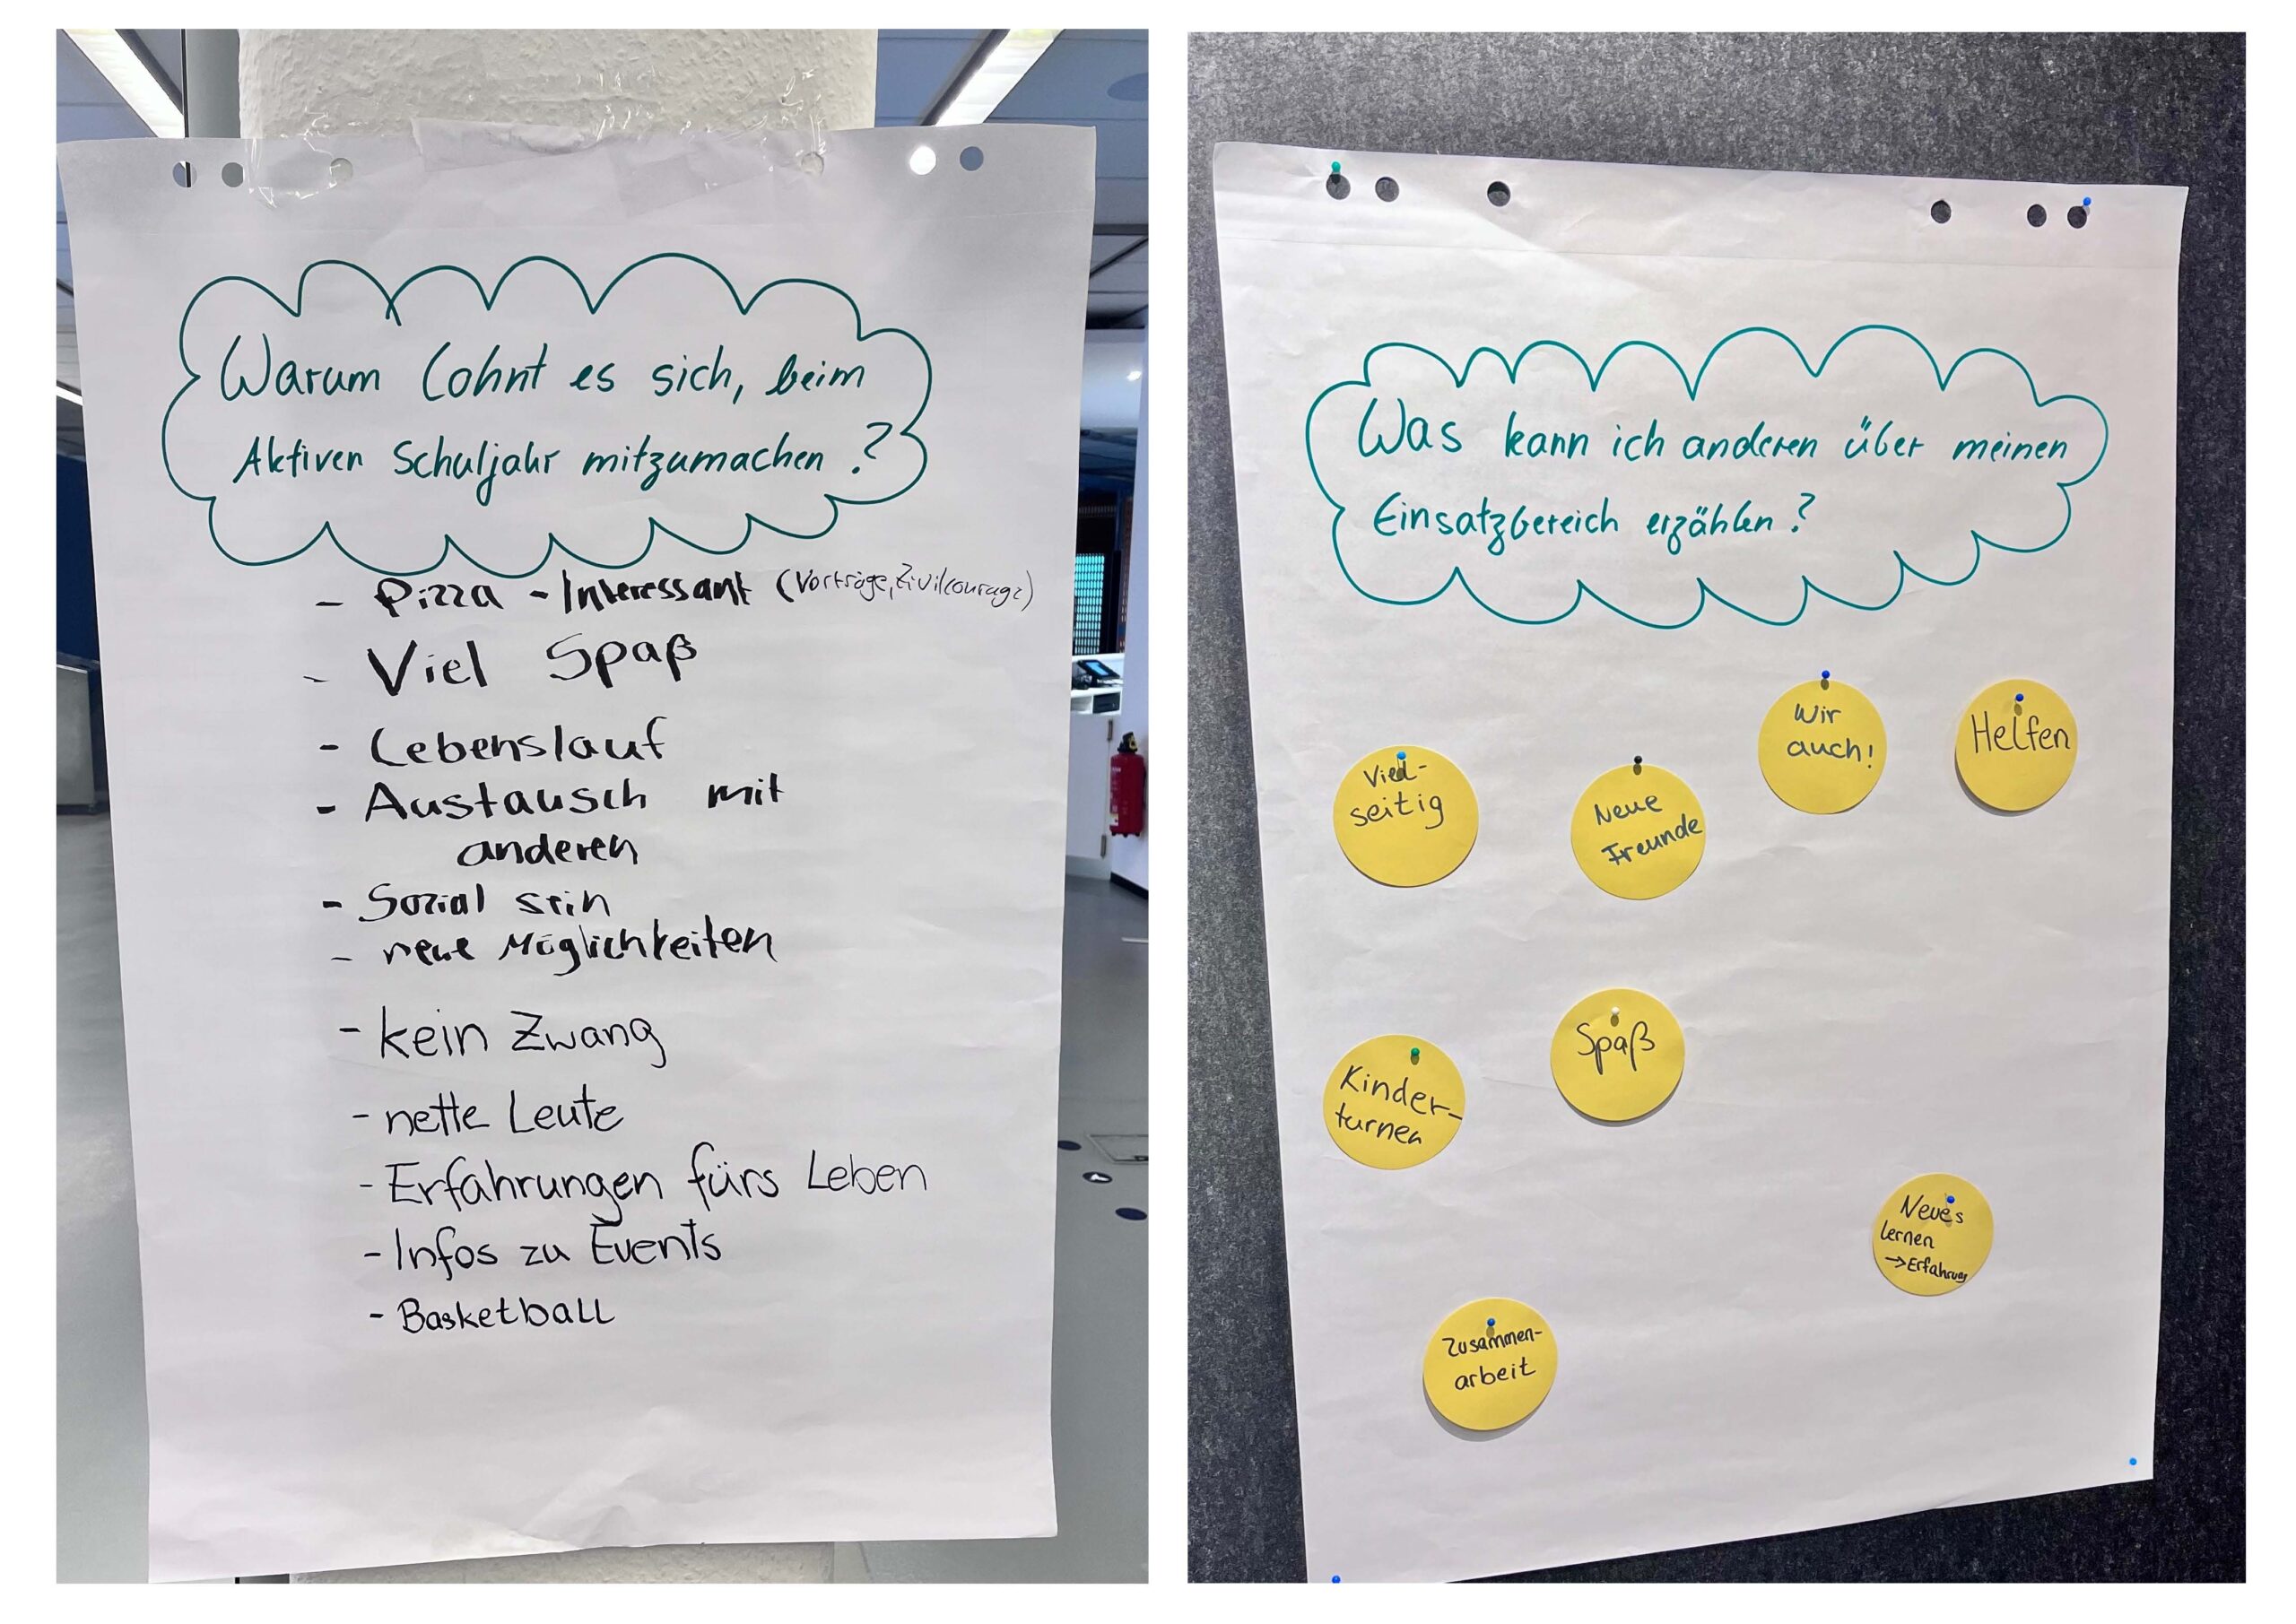 Warum lohnt es sich, beim
Aktiven Schuljahr mitzumachen?
- Pizza - Interessant (Vorträge, Zivilcourage)
- Viel Spaß
- Lebenslauf
- Austausch mit
anderen
- Sozial sein
- neue Möglichkeiten
- kein Zwang
- nette Leute
- Erfahrungen fürs Leben
- Infos zu Events
- Basketball
Was kann ich anderen über meinen
Einsatzbereich erzählen?
Viel-
seitig
Neue
Freunde
Wir
auch!
Helfen
Kinder-
turnen
Spaß
Neues
lernen
→ Erfahrung
Zusammen-
arbeit